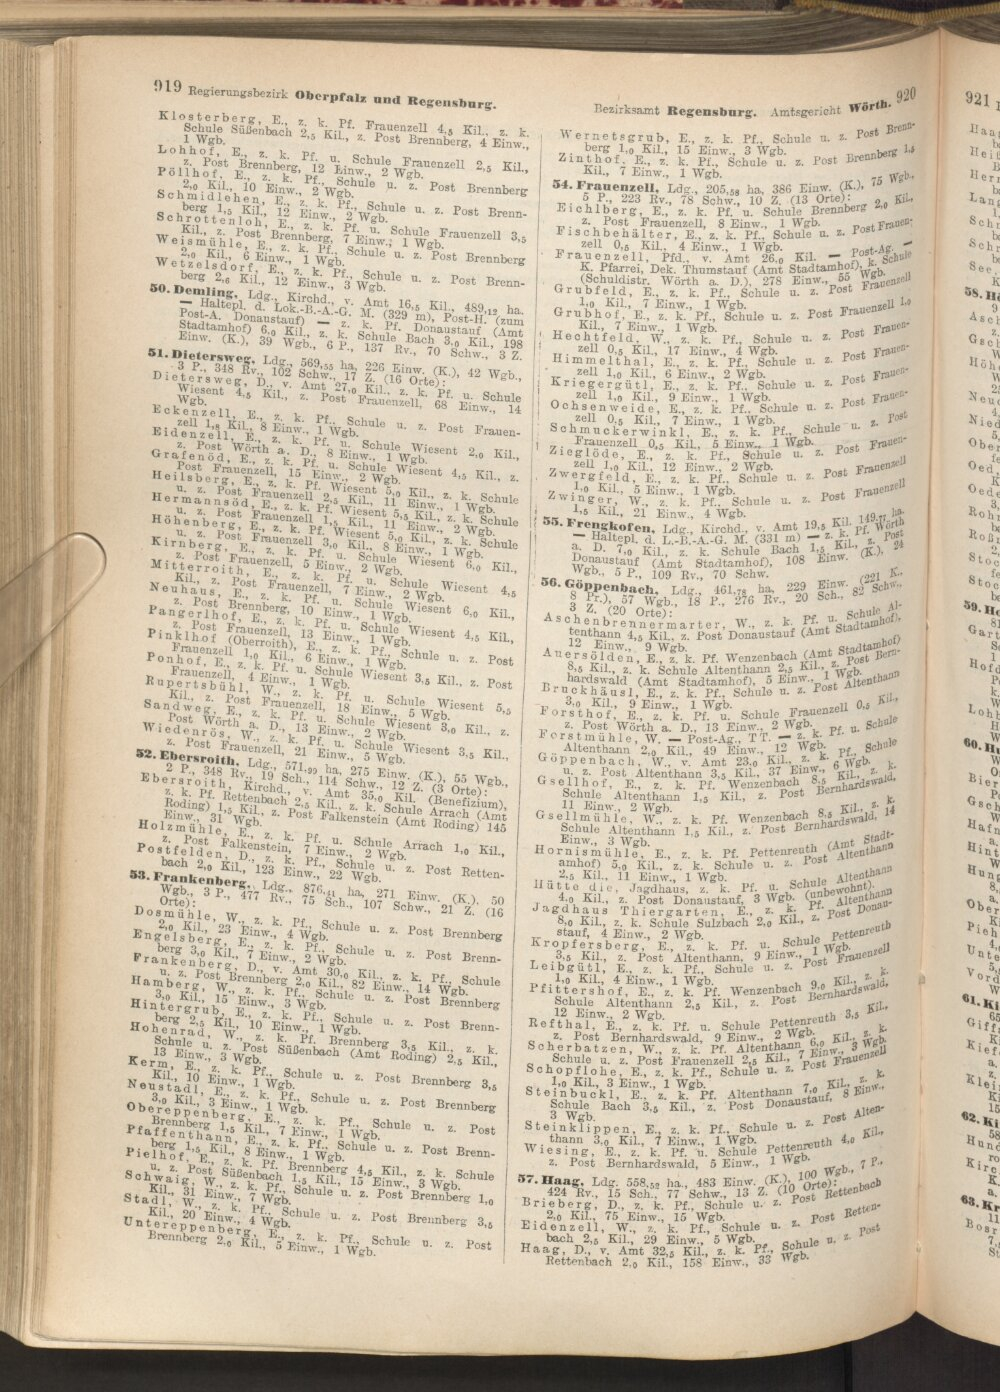 919 Regierungsbezirk Oberpfalz und Regensburg.
Klosterberg, E., z. k. Pf. Frauenzell 4,5 Kil., z. k.
Schule Süßenbach 2,5 Kil., z. Post Brennberg, 4 Einw.,
1 Wgb.
Lohhof, E., z. k. Pf. u. Schule Frauenzell 2,5 Kil.,
z. Post Brennberg, 12 Einw., 2 Wgb.
Pöllhof, E., z. k. Pf., Schule u. z. Post Brennberg
2,0 Kil., 10 Einw., 2 Wgb.
Schmidlehen, E., z. k. Pf., Schule u. z. Post Brenn-
berg 1,5 Kil., 12 Einw., 2 Wgb.
Schrottenloh, E., z. k. Pf. u. Schule Frauenzell 3,5
Kil., z. Post Brennberg, 7 Einw., 1 Wgb.
Weismühle, E., z. k. Pf., Schule u. z. Post Brennberg
2,0 Kil., 6 Einw., 1 Wgb.
Wetzelsdorf, E., z. k. Pf., Schule u. z. Post Brenn-
berg 2,6 Kil., 12 Einw., 3 Wgb.
50. Demling, Ldg., Kirchd., v. Amt 16,5 Kil., 489,12 ha.
— Haltepl. d. Lok.-B.-A.-G. M. (329 m), Post-H. (zum
Post-A. Donaustauf) — z. k. Pf. Donaustauf (Amt
Stadtamhof) 6,0 Kil., z. k. Schule Bach 3,0 Kil., 198
Einw. (K.), 39 Wgb., 6 P., 137 Rv., 70 Schw., 3 Z.
51. Dietersweg, Ldg., 569,55 ha, 226 Einw. (K.), 42 Wgb.,
3 P., 348 Rv., 102 Schw., 17 Z. (16 Orte):
Dietersweg, D., v. Amt 27,0 Kil., z. k. Pf. u. Schule
Wiesent 4,5 Kil., z. Post Frauenzell, 68 Einw., 14
Wgb.
Eckenzell, E., z. k. Pf., Schule u. z. Post Frauen-
zell 1,8 Kil., 8 Einw., 1 Wgb.
Eidenzell, E., z. k. Pf. u. Schule Wiesent 2,0 Kil.,
z. Post Wörth a. D., 8 Einw., 1 Wgb.
Grafenöd, E., z. k. Pf. u. Schule Wiesent 4,5 Kil., z.
Post Frauenzell, 15 Einw., 2 Wgb.
Heilsberg, E., z. k. Pf. Wiesent 5,0 Kil., z. k. Schule
u. z. Post Frauenzell 2,5 Kil., 11 Einw., 1 Wgb.
Hermannsöd, E., z. k. Pf. Wiesent 5,5 Kil., z. k. Schule
u. z. Post Frauenzell 1,5 Kil., 11 Einw., 2 Wgb.
Höhenberg, E., z. k. Pf. Wiesent 5,0 Kil., z. k. Schule
u. z. Post Frauenzell 3,0 Kil., 8 Einw., 1 Wgb.
Kirnberg, E., z. k. Pf. u. Schule Wiesent 6,0 Kil.,
z. Post Frauenzell, 5 Einw., 2 Wgb.
Mitterroith, E., z. k. Pf. u. Schule Wiesent 4,5
Kil., z. Post Frauenzell, 7 Einw., 2 Wgb.
Neuhaus, E., z. k. Pf. u. Schule Wiesent 6,0 Kil.,
z. Post Brennberg, 10 Einw., 1 Wgb.
Pangerlhof, E., z. k. Pf. u. Schule Wiesent 4,5 Kil.,
z. Post Frauenzell, 13 Einw., 1 Wgb.
Pinklhof (Oberroith), E., z. k. Pf., Schule u. z. Post
Frauenzell 1,0 Kil., 6 Einw., 1 Wgb.
Ponhof, E., z. k. Pf. u. Schule Wiesent 3,5 Kil., z. Post
Frauenzell, 4 Einw., 1 Wgb.
Rupertsbühl, W., z. k. Pf. u. Schule Wiesent 5,5
Kil., z. Post Frauenzell, 18 Einw., 5 Wgb.
Sandweg, E., z. k. Pf. u. Schule Wiesent 3,0 Kil., z.
Post Wörth a. D., 13 Einw., 2 Wgb.
Wiedenrös, W., z. k. Pf. u. Schule Wiesent 3,5 Kil.,
z. Post Frauenzell, 21 Einw., 5 Wgb.
52. Ebersroith, Ldg., 571,99 ha, 275 Einw. (K.), 55 Wgb.,
2 P., 348 Rv., 19 Sch., 114 Schw., 12 Z. (3 Orte):
Ebersroith, Kirchd., v. Amt 35,0 Kil. (Benefizium),
z. k. Pf. Rettenbach 2,5 Kil., z. k. Schule Arrach (Amt
Roding) 1,5 Kil., z. Post Falkenstein (Amt Roding) 145
Einw., 31 Wgb.
Holzmühle, E., z. k. Pf. u. Schule Arrach 1,0 Kil.,
z. Post Falkenstein, 7 Einw., 2 Wgb.
Postfelden, D., z. k. Pf., Schule u. z. Post Retten-
bach 2,0 Kil., 123 Einw., 22 Wgb.
53. Frankenberg, Ldg., 876,41 ha, 271 Einw. (K.), 50
Wgb., 3 P., 477 Rv., 75 Sch., 107 Schw., 21 Z. (16
Orte):
Dosmühle, W., z. k. Pf., Schule u. z. Post Brennberg
2,0 Kil., 23 Einw., 4 Wgb.
Engelsberg, E., z. k. Pf., Schule u. z. Post Brenn-
berg 3,0 Kil., 7 Einw., 2 Wgb.
Frankenberg, D., v. Amt 30,0 Kil., z. k. Pf., Schule
u. z. Post Brennberg 2,0 Kil., 82 Einw., 14 Wgb.
Hamberg, W., z. k. Pf., Schule u. z. Post Brennberg
3,0 Kil., 15 Einw., 3 Wgb.
Hintergrub, E., z. k. Pf., Schule u. z. Post Brenn-
berg 2,5 Kil., 10 Einw., 1 Wgb.
Hohenrad, W., z. k. Pf. Brennberg 3,5 Kil., z. k.
Schule u. z. Post Süßenbach (Amt Roding) 2,5 Kil.,
13 Einw., 3 Wgb.
Kerm, E., z. k. Pf., Schule u. z. Post Brennberg 3,5
Kil., 10 Einw., 1 Wgb.
Neustadl, E., z. k. Pf., Schule u. z. Post Brennberg
3,0 Kil., 3 Einw., 1 Wgb.
Obereppenberg, E., z. k. Pf., Schule u. z. Post
Brennberg 1,5 Kil., 7 Einw., 1 Wgb.
Pfaffenthann, E., z. k. Pf., Schule u. z. Post Brenn-
berg 1,5 Kil., 8 Einw., 1 Wgb.
Pielhof, E., z. k. Pf. Brennberg 4,5 Kil., z. k. Schule
u. z. Post Süßenbach 1,5 Kil., 15 Einw., 3 Wgb.
Schwaig, W., z. k. Pf., Schule u. z. Post Brennberg 1,0
Kil., 31 Einw., 7 Wgb.
Stadl, W., z. k. Pf., Schule u. z. Post Brennberg 3,5
Kil., 20 Einw., 4 Wgb.
Untereppenberg, E., z. k. Pf., Schule u. z. Post
Brennberg 2,0 Kil., 5 Einw., 1 Wgb.
Bezirksamt Regensburg. Amtsgericht Wörth. 920
Wernetsgrub, E., z. k. Pf., Schule u. z. Post Brenn-
berg 1,0 Kil., 15 Einw., 3 Wgb.
Zinthof, E., z. k. Pf., Schule u. z. Post Brennberg 1,5
Kil., 7 Einw., 1 Wgb.
54. Frauenzell, Ldg., 205,58 ha, 386 Einw. (K.), 75 Wgb.,
5 P., 223 Rv., 78 Schw., 10 Z. (13 Orte):
Eichlberg, E., z. k. Pf. u. Schule Brennberg 2,0 Kil.,
z. Post Frauenzell, 8 Einw., 1 Wgb.
Fischbehälter, E., z. k. Pf., Schule u. z. Post Frauen-
zell 0,5 Kil., 4 Einw., 1 Wgb.
Frauenzell, Pfd., v. Amt 26,0 Kil. — Post-Ag. —
K. Pfarrei, Dek. Thumstauf (Amt Stadtamhof), k. Schule
(Schuldistr. Wörth a. D.), 278 Einw., 55 Wgb.
Grubfeld, E., z. k. Pf., Schule u. z. Post Frauenzell
1,0 Kil., 7 Einw., 1 Wgb.
Grubhof, E., z. k. Pf., Schule u. z. Post Frauenzell 1,0
Kil., 7 Einw., 1 Wgb.
Hechtfeld, W., z. k. Pf., Schule u. z. Post Frauen-
zell 0,5 Kil., 17 Einw., 4 Wgb.
Himmelthal, E., z. k. Pf., Schule u. z. Post Frauen-
zell 1,0 Kil., 6 Einw., 2 Wgb.
Kriegergütl, E., z. k. Pf., Schule u. z. Post Frauen-
zell 1,0 Kil., 9 Einw., 1 Wgb.
Ochsenweide, E., z. k. Pf., Schule u. z. Post Frauen-
zell 0,5 Kil., 7 Einw., 1 Wgb.
Schmuckerwinkl, E., z. k. Pf., Schule u. z. Post
Frauenzell 0,5 Kil., 5 Einw., 1 Wgb.
Zieglöde, E., z. k. Pf., Schule u. z. Post Frauen-
zell 1,0 Kil., 12 Einw., 2 Wgb.
Zwergfeld, E., z. k. Pf., Schule u. z. Post Frauenzell
1,0 Kil., 5 Einw., 1 Wgb.
Zwinger, W., z. k. Pf., Schule u. z. Post Frauenzell
1,5 Kil., 21 Einw., 4 Wgb.
55. Frengkofen, Ldg., Kirchd., v. Amt 19,5 Kil. 149,77 ha.
— Haltepl. d. L.-B.-A.-G. M. (331 m) — z. k. Pf. Wörth
a. D. 7,0 Kil., z. k. Schule Bach 1,5 Kil., z. Post
Donaustauf (Amt Stadtamhof), 108 Einw. (K.), 24
Wgb., 5 P., 109 Rv., 70 Schw.
56. Göppenbach, Ldg., 461,78 ha, 229 Einw. (221 K.,
8 Pr.), 57 Wgb., 18 P., 276 Rv., 20 Sch., 82 Schw.,
3 Z. (20 Orte):
Aschenbrennermarter, W., z. k. Pf. u. Schule Al-
tenthann 4,5 Kil., z. Post Donaustauf (Amt Stadtamhof),
12 Einw., 9 Wgb.
Auersölden, E., z. k. Pf. Wenzenbach (Amt Stadtamhof)
8,5 Kil., z. k. Schule Altenthann 2,5 Kil., z. Post Bern-
hardswald (Amt Stadtamhof), 5 Einw., 1 Wgb.
Bruckhäusl, E., z. k. Pf., Schule u. z. Post Altenthann
3,0 Kil., 9 Einw., 1 Wgb.
Forsthof, E., z. k. Pf. u. Schule Frauenzell 0,5 Kil.,
z. Post Wörth a. D., 13 Einw., 2 Wgb.
Forstmühle, W. — Post-Ag., TT. — z. k. Pf. u. Schule
Altenthann 2,0 Kil., 49 Einw., 12 Wgb.
Göppenbach, W., v. Amt 23,0 Kil., z. k. Pf., Schule
u. z. Post Altenthann 3,5 Kil., 37 Einw., 6 Wgb.
Gselhof, E., z. k. Pf. Wenzenbach 8,5 Kil., z. k.
Schule Altenthann 1,5 Kil., z. Post Bernhardswald,
11 Einw., 2 Wgb.
Gsellmühle, W., z. k. Pf. Wenzenbach 8,5 Kil., z. k.
Schule Altenthann 1,5 Kil., z. Post Bernhardswald, 14
Einw., 3 Wgb.
Hornismühle, E., z. k. Pf. Pettenreuth (Amt Stadt-
amhof) 5,0 Kil., z. k. Schule u. z. Post Altenthann
2,5 Kil., 11 Einw., 1 Wgb.
Hütte die, Jagdhaus, z. k. Pf. u. Schule Altenthann
4,0 Kil., z. Post Donaustauf, 3 Wgb. (unbewohnt).
Jagdhaus Thiergarten, E., z. k. Pf. Altenthann
8,0 Kil., z. k. Schule Sulzbach 2,0 Kil., z. Post Donau-
stauf, 4 Einw., 2 Wgb.
Kropfersberg, E., z. k. Pf. u. Schule Pettenreuth
3,5 Kil., z. Post Altenthann, 9 Einw., 1 Wgb.
Leibgütl, E., z. k. Pf., Schule u. z. Post Frauenzell
1,0 Kil., 4 Einw., 1 Wgb.
Pfittershof, E., z. k. Pf. Wenzenbach 9,0 Kil., z. k.
Schule Altenthann 2,5 Kil., z. Post Bernhardswald,
12 Einw., 2 Wgb.
Refthal, E., z. k. Pf. u. Schule Pettenreuth 3,5 Kil.,
z. Post Bernhardswald, 9 Einw., 2 Wgb.
Scherbatzen, W., z. k. Pf. Altenthann 6,0 Kil., z. k.
Schule u. z. Post Frauenzell 2,5 Kil., 7 Einw., 3 Wgb.
Schopflohe, E., z. k. Pf., Schule u. z. Post Frauenzell
1,0 Kil., 3 Einw., 1 Wgb.
Steinbuckl, E., z. k. Pf. Altenthann 7,0 Kil., z. k.
Schule Bach 3,5 Kil., z. Post Donaustauf, 8 Einw.,
3 Wgb.
Steinklippen, E., z. k. Pf., Schule u. z. Post Alten-
thann 3,0 Kil., 7 Einw., 1 Wgb.
Wiesing, E., z. k. Pf. u. Schule Pettenreuth 4,0 Kil.,
z. Post Bernhardswald, 5 Einw., 1 Wgb.
57. Haag, Ldg. 558,59 ha., 483 Einw. (K.), 100 Wgb., 7 P.,
424 Rv., 15 Sch., 77 Schw., 13 Z. (10 Orte):
Brieberg, D., z. k. Pf., Schule u. z. Post Rettenbach
2,0 Kil., 75 Einw., 15 Wgb.
Eidenzell, W., z. k. Pf., Schule u. z. Post Retten-
bach 2,5 Kil., 29 Einw., 5 Wgb.
Haag, D., v. Amt 32,5 Kil., z. k. Pf., Schule u. z. Post
Rettenbach 2,0 Kil., 158 Einw., 33 Wgb.
921